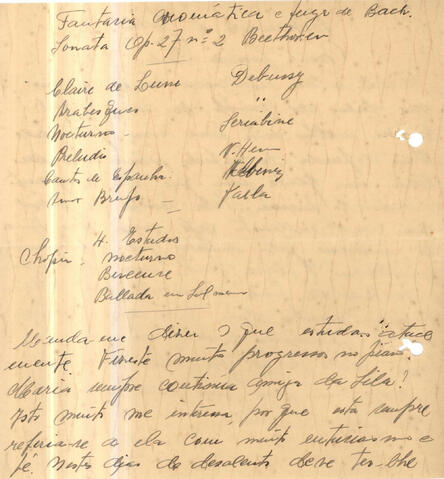 Fantasia cromática e fuga de Bach.
Sonata Op. 27 nº 2 Beethoven
Claire de Lune Debussy
Arabesques "
Nocturno - Scriabine
Preludio
Cantos de Espanha. Albeniz
Amor Brujo - Falla
4. Estudos
Chopin. nocturno
Berceuse
Ballada em Sol menor
Manda-me dizer o que estudas actual
mente. Fizeste muito progresso no piano
Maria sempre continua amiga da Lila?
Isto muito me interessa, por que esta sempre
referia-se a ela com muito entusiasmo e
fé. Nestes dias de desalento deve ter-lhe